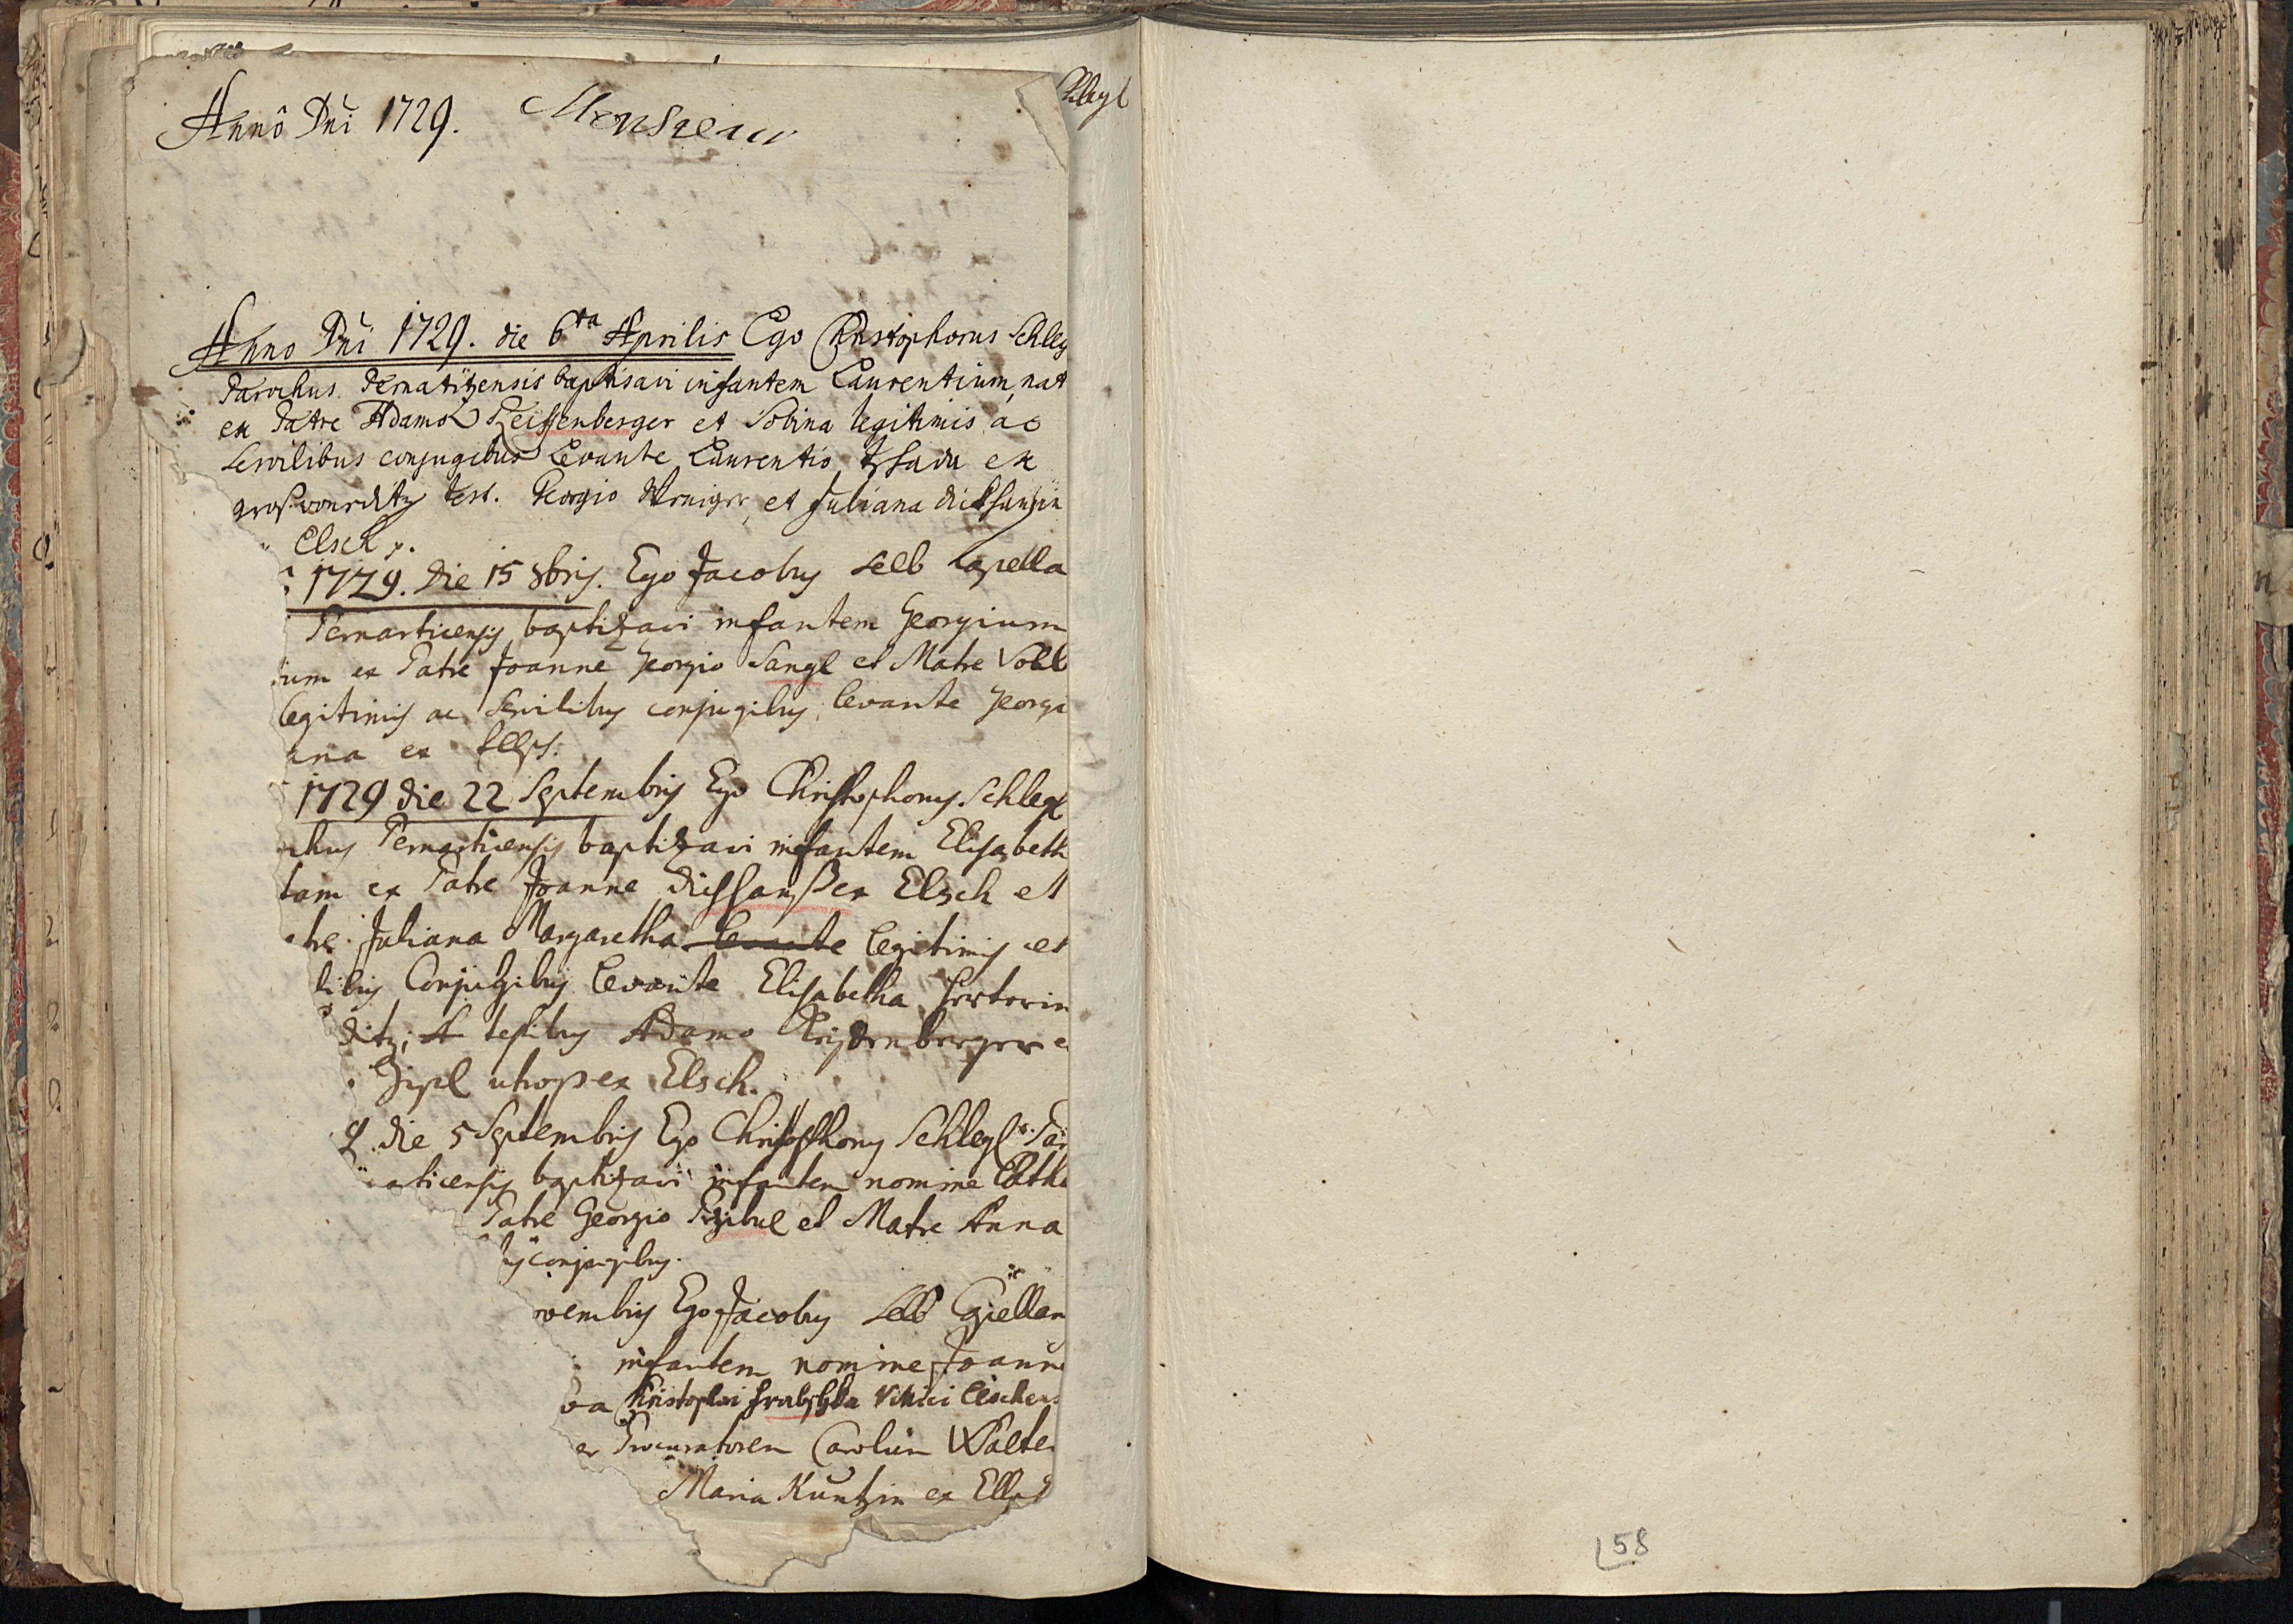 Annô Dni 1729.
Schlegl
Anno Dni 1729. die 6ta Aprilis Ego Christophorus Schleg
Parochus Pernatitzensis baptisavi infantem Laurentium, nat
ex Patre Adamo Reissenberger et Sobina legitimis ac
Servilibus conjugibus Levante Laurentio ex
test. Georgio et Juliana
Elsch
1729. Die 15 8bris. Ego Jacobus Selb Capella
Pernarticensis baptizavi infantem Georgium
um ex Patre Joanne Georgio Sangl et Matre
legitimis ac Servilibus conjugibus, levante Georgi
ana ex
1729 die 22 Septembris Ego Christophorus Schlegl
chus Pernarticensis baptizavi infantem Elisabeth
tam ex Patre Joanne ex Elsch et
tre Juliana Margaretha levante legitimis et
libus Conjugibus levante Elisabetha
ditz; testibus Adamo
Zipl ex Elsch.
9 die 5 Septembris Ego Christophorus Schlegl Par
articensis baptizavi infantem nomine Cath
Patre Georgio et Matre Anna
us conjugibus.
vembris Ego Jacobus Selb Capellan
infantem nomine Joann
va Christophori
er Procuratorem Carolum Walter
Maria Kuntzin ex
58